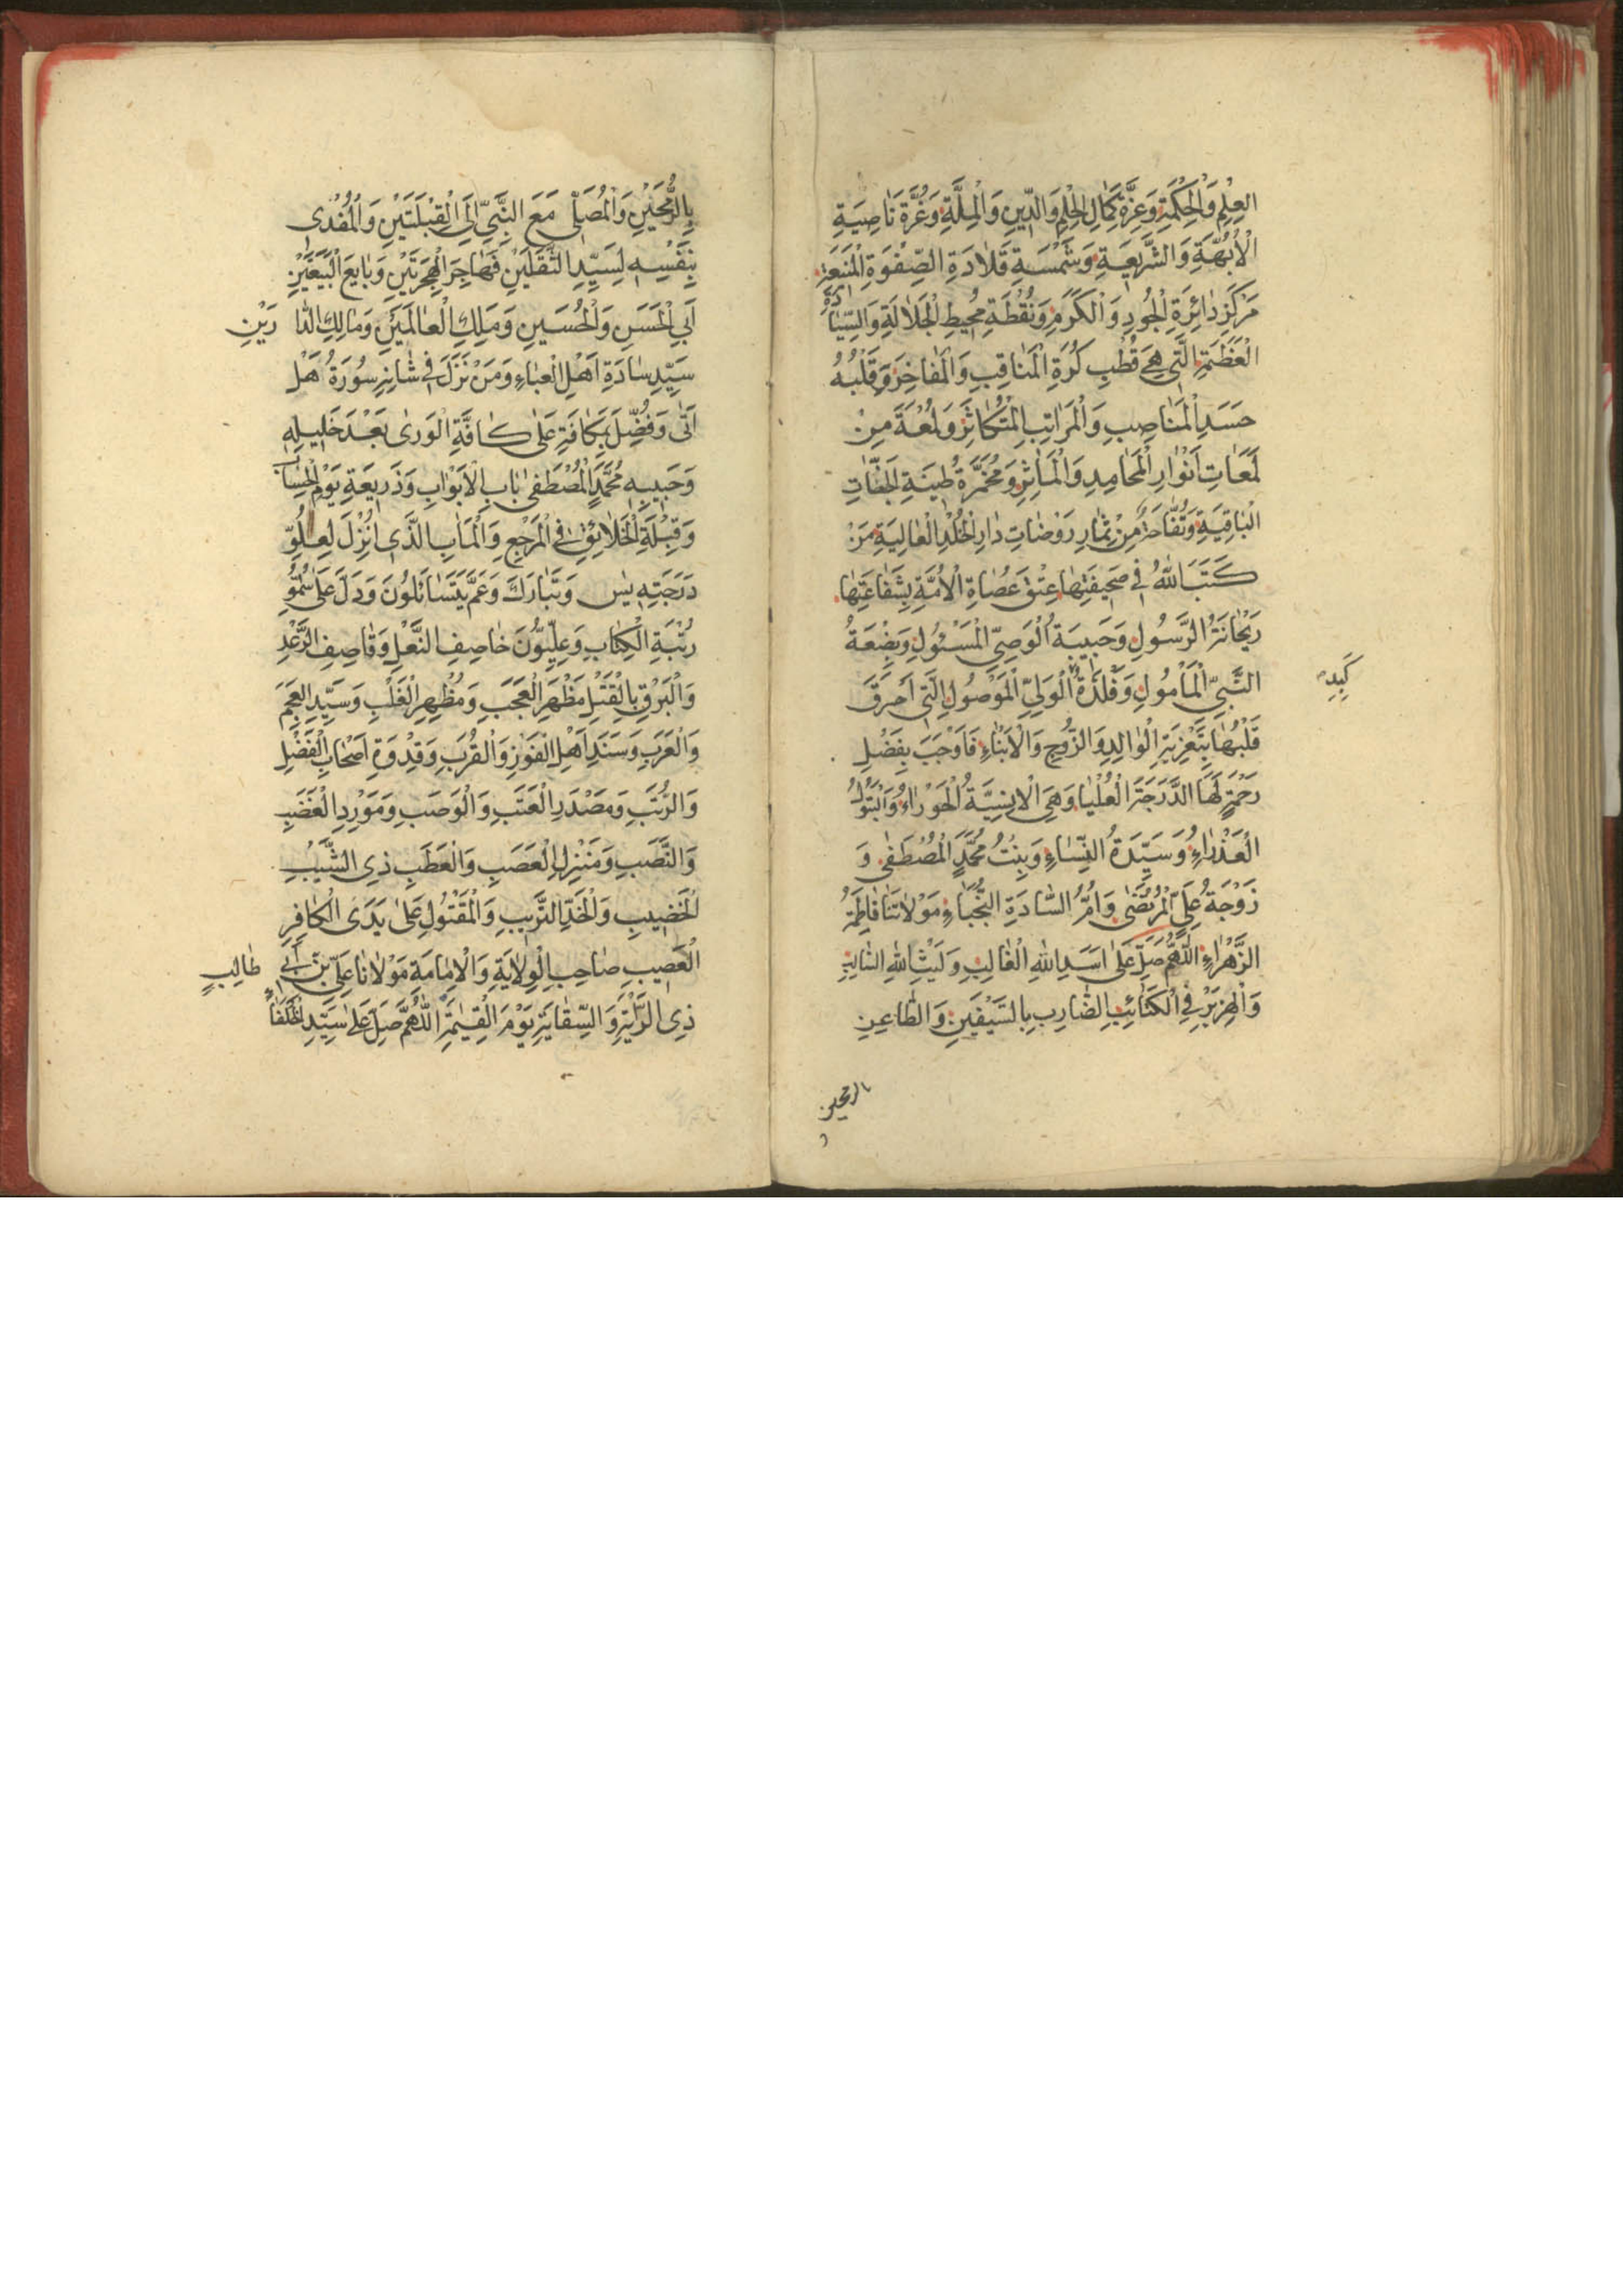 العِلْمِ وَالْحِكْمَةِ وَعِزَّةِ كَمَالِ الْحِلْمِ وَالدِّينِ وَالْمِلَّةِ وَغُرَّةِ نَاصِيَةِ
الْأُبُهَّةِ وَالشَّرِيعَةِ وَشَمْسَةِ قَلَادَةِ الصَّفْوَةِ الْمَنِيعَةِ
مَرْكَزِ دَائِرَةِ الْجُودِ وَالْكَرَمِ وَنُقْطَةِ مُحِيطِ الْجَلَالَةِ وَالسِّيَادَةِ
الْعَظَمَةِ الَّتِي هِيَ قُطْبُ كُرَةِ الْمَنَاقِبِ وَالْمَفَاخِرِ وَقَلْبُهُ
جَسَدِ الْمَنَاصِبِ وَالْمَرَاتِبِ الْمُتَكَاثِرِ وَلَمْعَةٌ مِنْ
لَمَعَاتِ أَنْوَارِ الْمَحَامِدِ وَالْمَآثِرِ وَمُخَمَّرَةُ طِينَةِ الْجَنَّاتِ
الْبَاقِيَةِ وَتُفَّاحَةٌ مِنْ ثِمَارِ رَوْضَاتِ دَارِ الْخُلْدِ الْعَالِيَةِ مَنْ
كَتَبَ اللّٰهُ فِي صَحِيفَتِهَا عِتْقَ عُصَاةِ الْأُمَّةِ بِشَفَاعَتِهَا
رَيْحَانَةُ الرَّسُولِ وَحَبِيبَةُ الْوَصِيِّ الْمَسْئُولِ وَبَضْعَةُ
النَّبِيِّ الْمَأْمُولِ وَفَلْذَةُ الْوَلِيِّ الْمَوْصُولِ الَّتِي أَحْرَقَ
كَبِدِ
قَلْبُهَا بِتَعْزِيَةِ الْوَالِدِ وَالزَّوْجِ وَالْأَبْنَاءِ فَأَوْجَبَ بِفَضْلِ
رَحْمَةٍ لَهَا الدَّرَجَةَ الْعُلْيَا وَهِيَ الْإِنْسِيَّةُ الْحَوْرَاءُ وَالْبَتُولُ
الْعَذْرَاءُ وَسَيِّدَةُ النِّسَاءِ وَبِنْتُ مُحَمَّدٍ الْمُصْطَفَى وَ
زَوْجَةُ عَلِيٍّ الْمُرْتَضَى وَأُمُّ السَّادَةِ النُّجَبَاءِ مَوْلَاتُنَا فَاطِمَةُ
الزَّهْرَاءِ اللّٰهُمَّ صَلِّ عَلَى أَسَدِ اللّٰهِ الْغَالِبِ وَلَيْثِ اللّٰهِ
وَالْهِزَبْرِ فِي الْكَتَائِبِ الضَّارِبِ بِالسَّيْفَيْنِ وَالطَّاعِنِ
بالرمحين
بِالرُّمْحَيْنِ وَالْمُصَلِّي مَعَ النَّبِيِّ إِلَى الْقِبْلَتَيْنِ وَالْمُفْدِي
بِنَفْسِهِ لِسَيِّدِ الثَّقَلَيْنِ فَهَاجَرَ الْهِجْرَتَيْنِ وَبَايَعَ الْبَيْعَتَيْنِ
أَبِي الْحَسَنِ وَالْحُسَيْنِ وَمَلِكِ الْعَالَمَيْنِ وَمَالِكِ الدَّارَيْنِ
سَيِّدِ سَادَةِ أَهْلِ الْعَبَاءِ وَمَنْ نَزَلَ فِي شَانِهِ سُورَةُ هَلْ
أَتَى وَفُضِّلَ بِكَافَةٍ عَلَى كَافَّةِ الْوَرَى بَعْدَ خَلِيلِهِ
وَحَبِيبِهِ مُحَمَّدٍ الْمُصْطَفَى بَابِ الْأَبْوَابِ وَذَرِيعَةِ يَوْمِ الْحِسَابِ
وَقِبْلَةِ الْخَلَائِقِ فِي الْمَرْجِعِ وَالْمَآبِ الَّذِي أُنْزِلَ لِعُلُوِّ
دَرَجَتِهِ يٰس وَتَبَارَكَ وَعَمَّ يَتَسَائَلُونَ وَدَلَّ عَلَى سُمُوِّ
رُتْبَةِ الْكِتَابِ وَعِلِّيُّونَ خَاصِفِ النَّعْلِ وَقَاصِفِ الرَّعْدِ
وَالْبَرْقِ بِالْقَتْلِ مَظْهَرِ الْعَجَبِ وَمُظْهِرِ الْغَلَبِ وَسَيِّدِ الْعَجَمِ
وَالْعَرَبِ وَسَنَدِ أَهْلِ الْفَوْزِ وَالْقُرَبِ وَقِدْوَةِ أَصْحَابِ الْفَضْلِ
وَالرُّتَبِ وَمَصْدَرِ الْعَتَبِ وَالْوَصَبِ وَمَوْرِدِ الْغَضَبِ
وَالنَّصَبِ وَمَنْزِلِ الْعَصَبِ وَالْعَطَبِ ذِي الشَّيْبِ
الْخَضِيبِ وَالْخَدِّ التَّرِيبِ وَالْمَقْتُولِ عَلَى يَدَيِ الْكَافِرِ
الْعَصِيبِ صَاحِبِ الْوِلَايَةِ وَالْإِمَامَةِ مَوْلَانَا عَلِيِّ بْنِ أَبِي طَالِبٍ
ذِي الرَّايَةِ وَالسِّقَايَةِ يَوْمَ الْقِيٰمَةِ اللّٰهُمَّ صَلِّ عَلَى سَيِّدِ الْخُلَفَاءِ